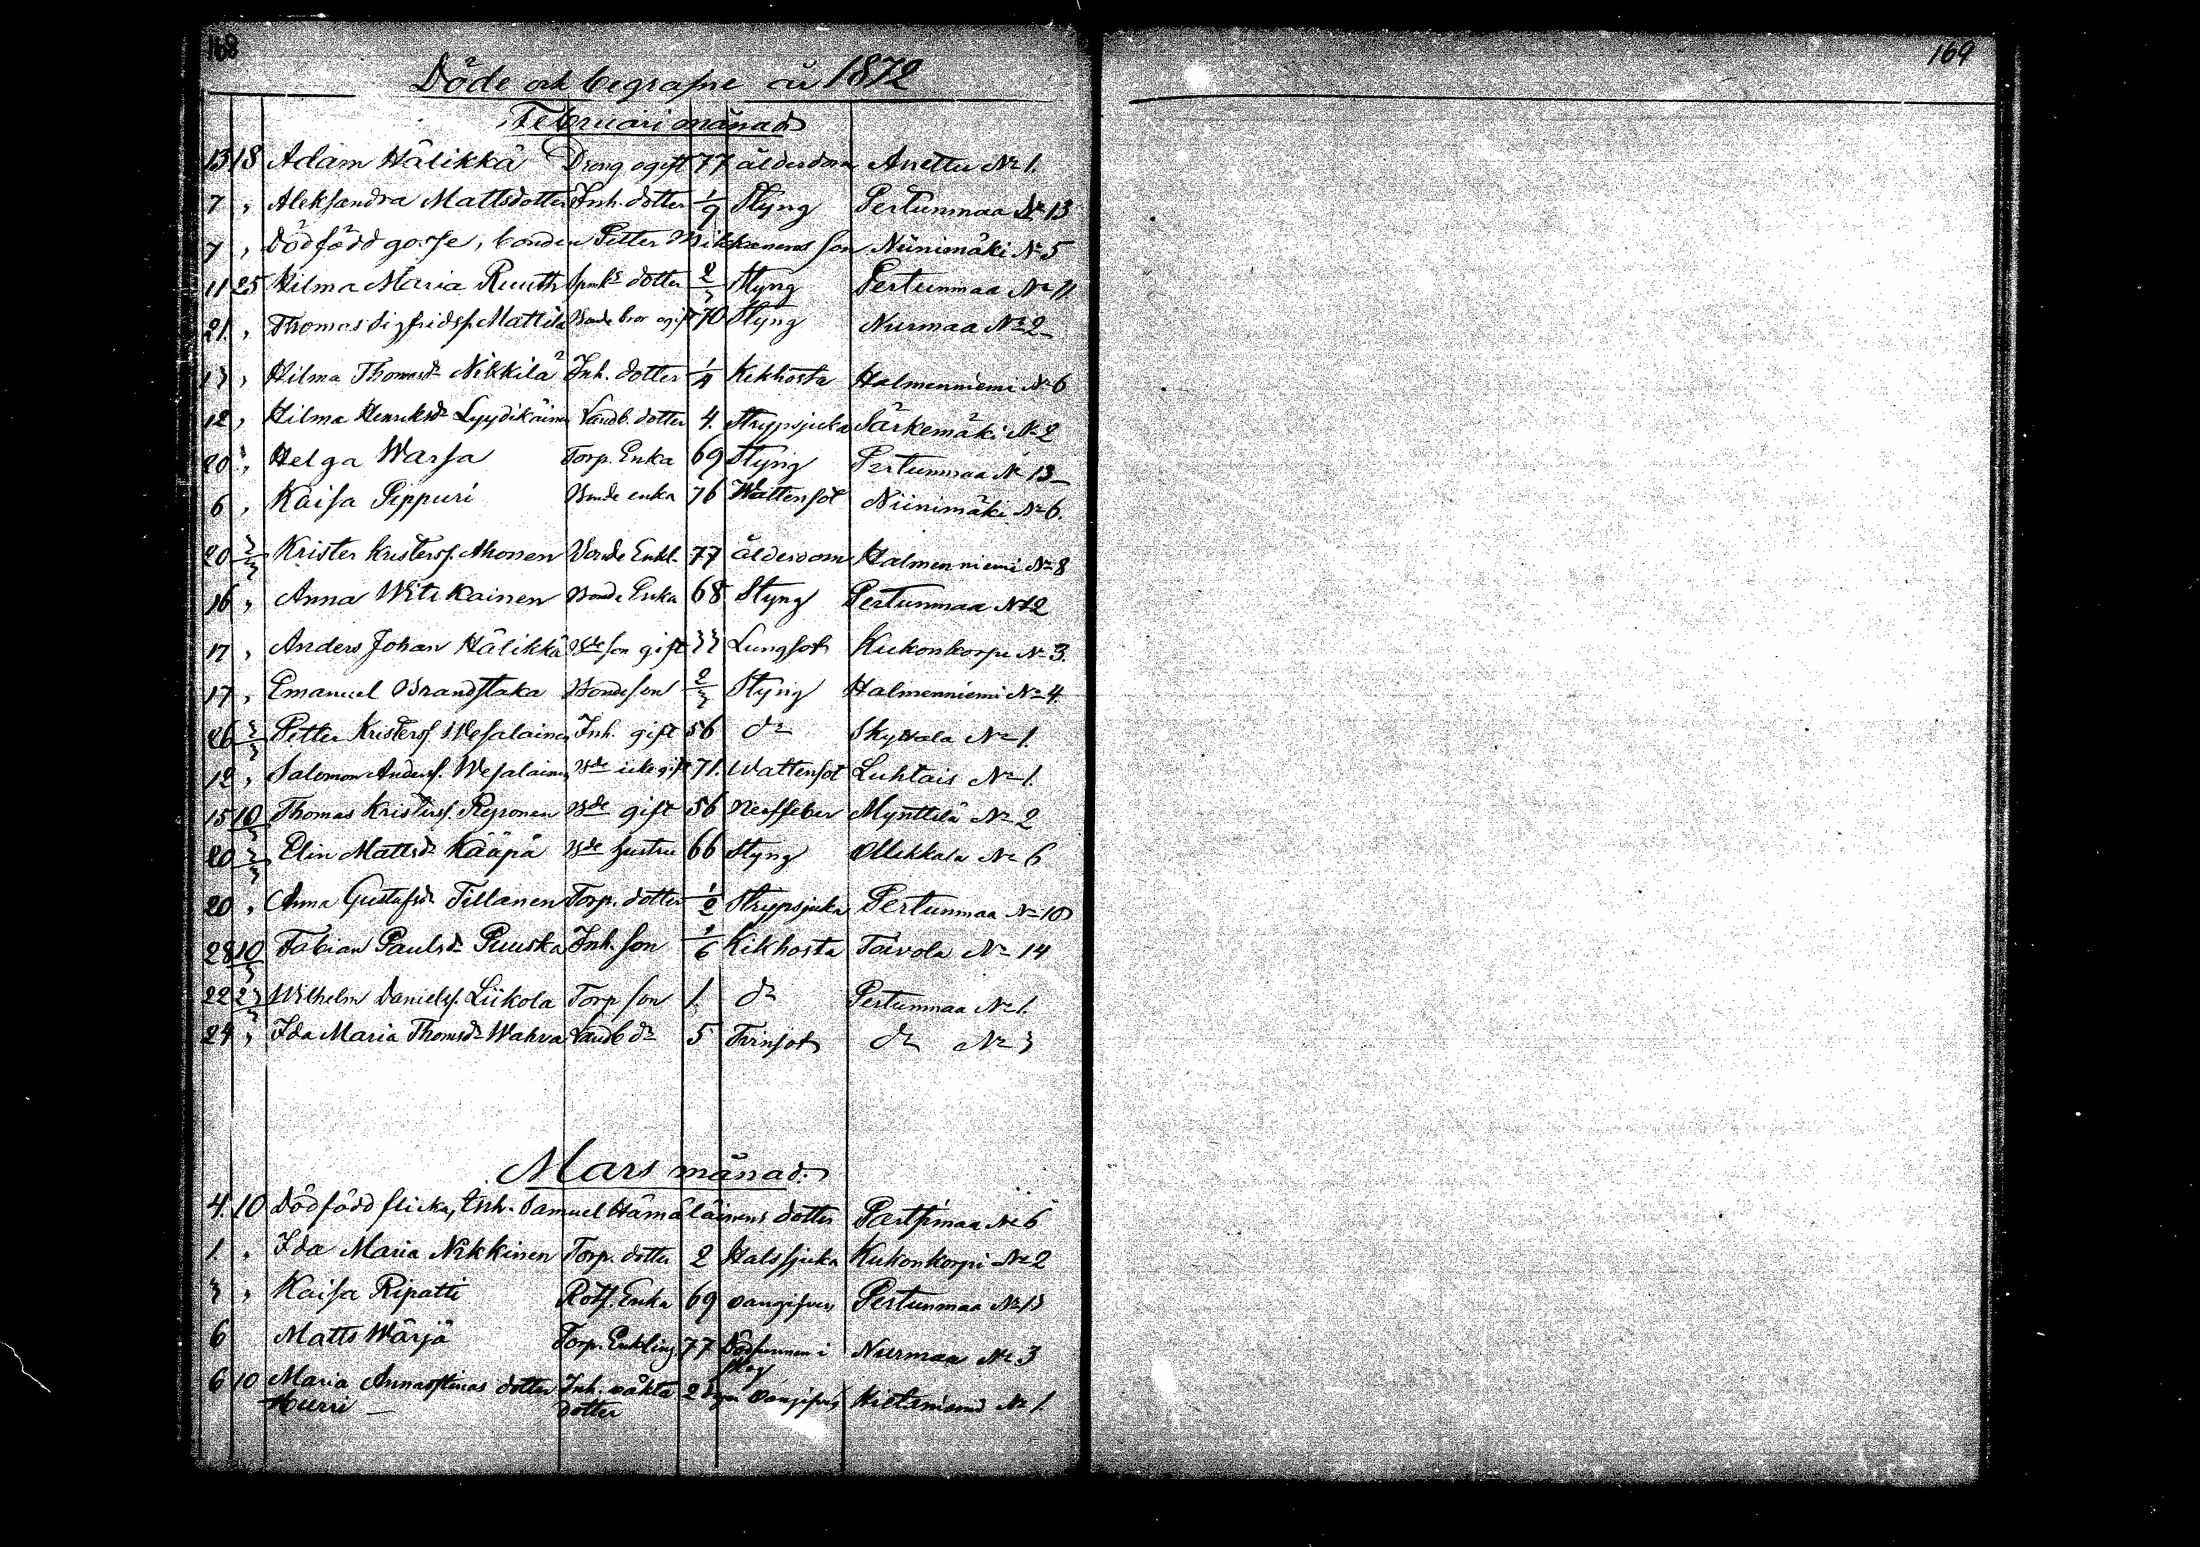 168
169
Döde och begrafne år 1872
Februari månad
13 18 Adam Hälikkä Dräng ogift 77 ålderdom Anettu No 1.
7 " Aleksandra Mattsdotter Inh. dotter 1/9 Styng Pertunmaa No 13
7 " Dödfödd gosse, bonden Petter Mikkonens son Niinimäki No 5
11 25 Hilma Maria Ruuth dotter 2/3 Styng Pertunmaa No 11
21. " Thomas Sigfridsf. Mattila Bonde bror ogift 70 Styng Nurmaa No 2
13 " Hilma Thomasdr Nikkilä Inh. dotter 1/4 Kikhosta Halmenniemi No 6
12 " Hilma Henriksdr Lyydikäinen Landb. dotter 4. Strypsjuka Särkemäki No 2
20 " Helga Warsa Torp. Enka 69 Styng Pertunmaa No 13
6 " Kaisa Pippuri Bonde enka 76 Wattensot Niinimäki No 6.
20 3/3 Krister Kristersf. Ahonen Bonde Enkl. 77 ålderdom Halmenniemi No 8
16 " Anna Witikainen Bonde Enka 68 Styng Pertunmaa No 2
17 " Anders Johan Hälikkä Bde son gift 33 Lungsot Kukonkorpi No 3.
17 " Emanuel Brandstaka Bonde son 2/3 Styng Halmenniemi No 4
26 3/3 Petter Kristersf Wesalainen Inh. gift 56 do No 1.
12 " Salomon Andersf. Wesalainen Bde icke gift 71. Wattensot Luhtais No 1.
15 10/3 Thomas Kristersf. Reponen Bde gift 56 Nerffeber Mynttilä No 2
20 3/3 Elin Mattsdr Kääpä Bde hustru 66 Styng Ollikkala No 6
20 " Anna Gustafsdr Tillanen Torp. dotter 1/2 Strypsjuka Pertunmaa No 10
28 10/3 Fabian Paulsdr Puuska Inh. son 1/6 Kikhosta Toivola No 14
22 23/3 Wilhelm Danielsf. Liikola Torp son 1. do Pertunmaa No 1.
24 " Ida Maria Thomsdr Wahva Landb dr 5 Tärnsot do No 3
Mars månad.
4. 10 Dödfödd flicka, Inh. Samuel Hämäläinens dotter No 6
1. " Ida Maria Nikkinen Torp. dotter 2 Halssjuka Kukonkorpi No 2
3 " Kaisa Ripatti Rotf. Enka 69 oangifven Pertunmaa No 13
6 Matts Wärjä Torp. Enkling 77 Dödfunnen i skog Nurmaa No 3
6 10 Maria Annastinas dotter Inh. oäkta 2 dygn oangifven No 1.
Hurri — dotter